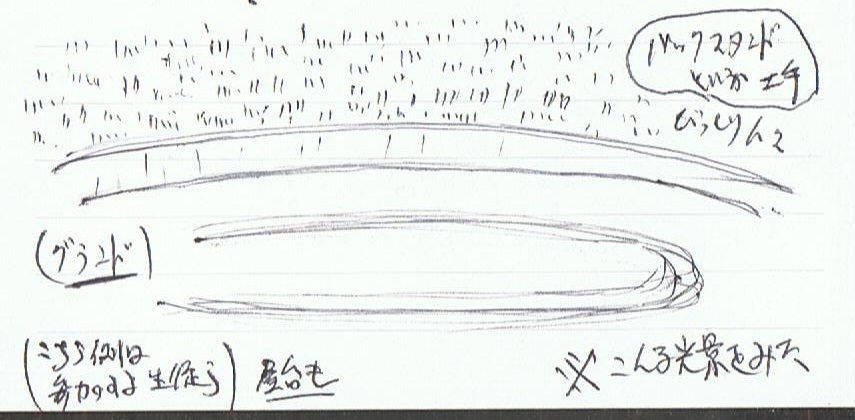 バックスタンド
というか土手
びっしり人々
(グランド)
(こちら側は
参加する生徒ら)
屋台も
※こんな光景をみた